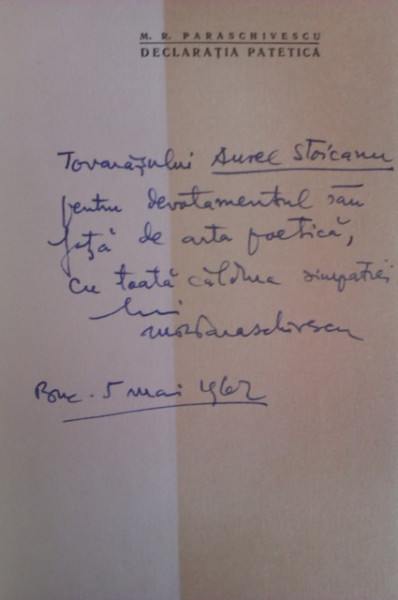 M. R. PARASCHIVESCU
DECLARAȚIA PATETICĂ
Tovarășului Aurel Stoicanu
pentru devotamentul său
față de arta poetică,
cu toată căldura simpatiei
lui
MRParaschivescu
Buc. 5 mai 1962